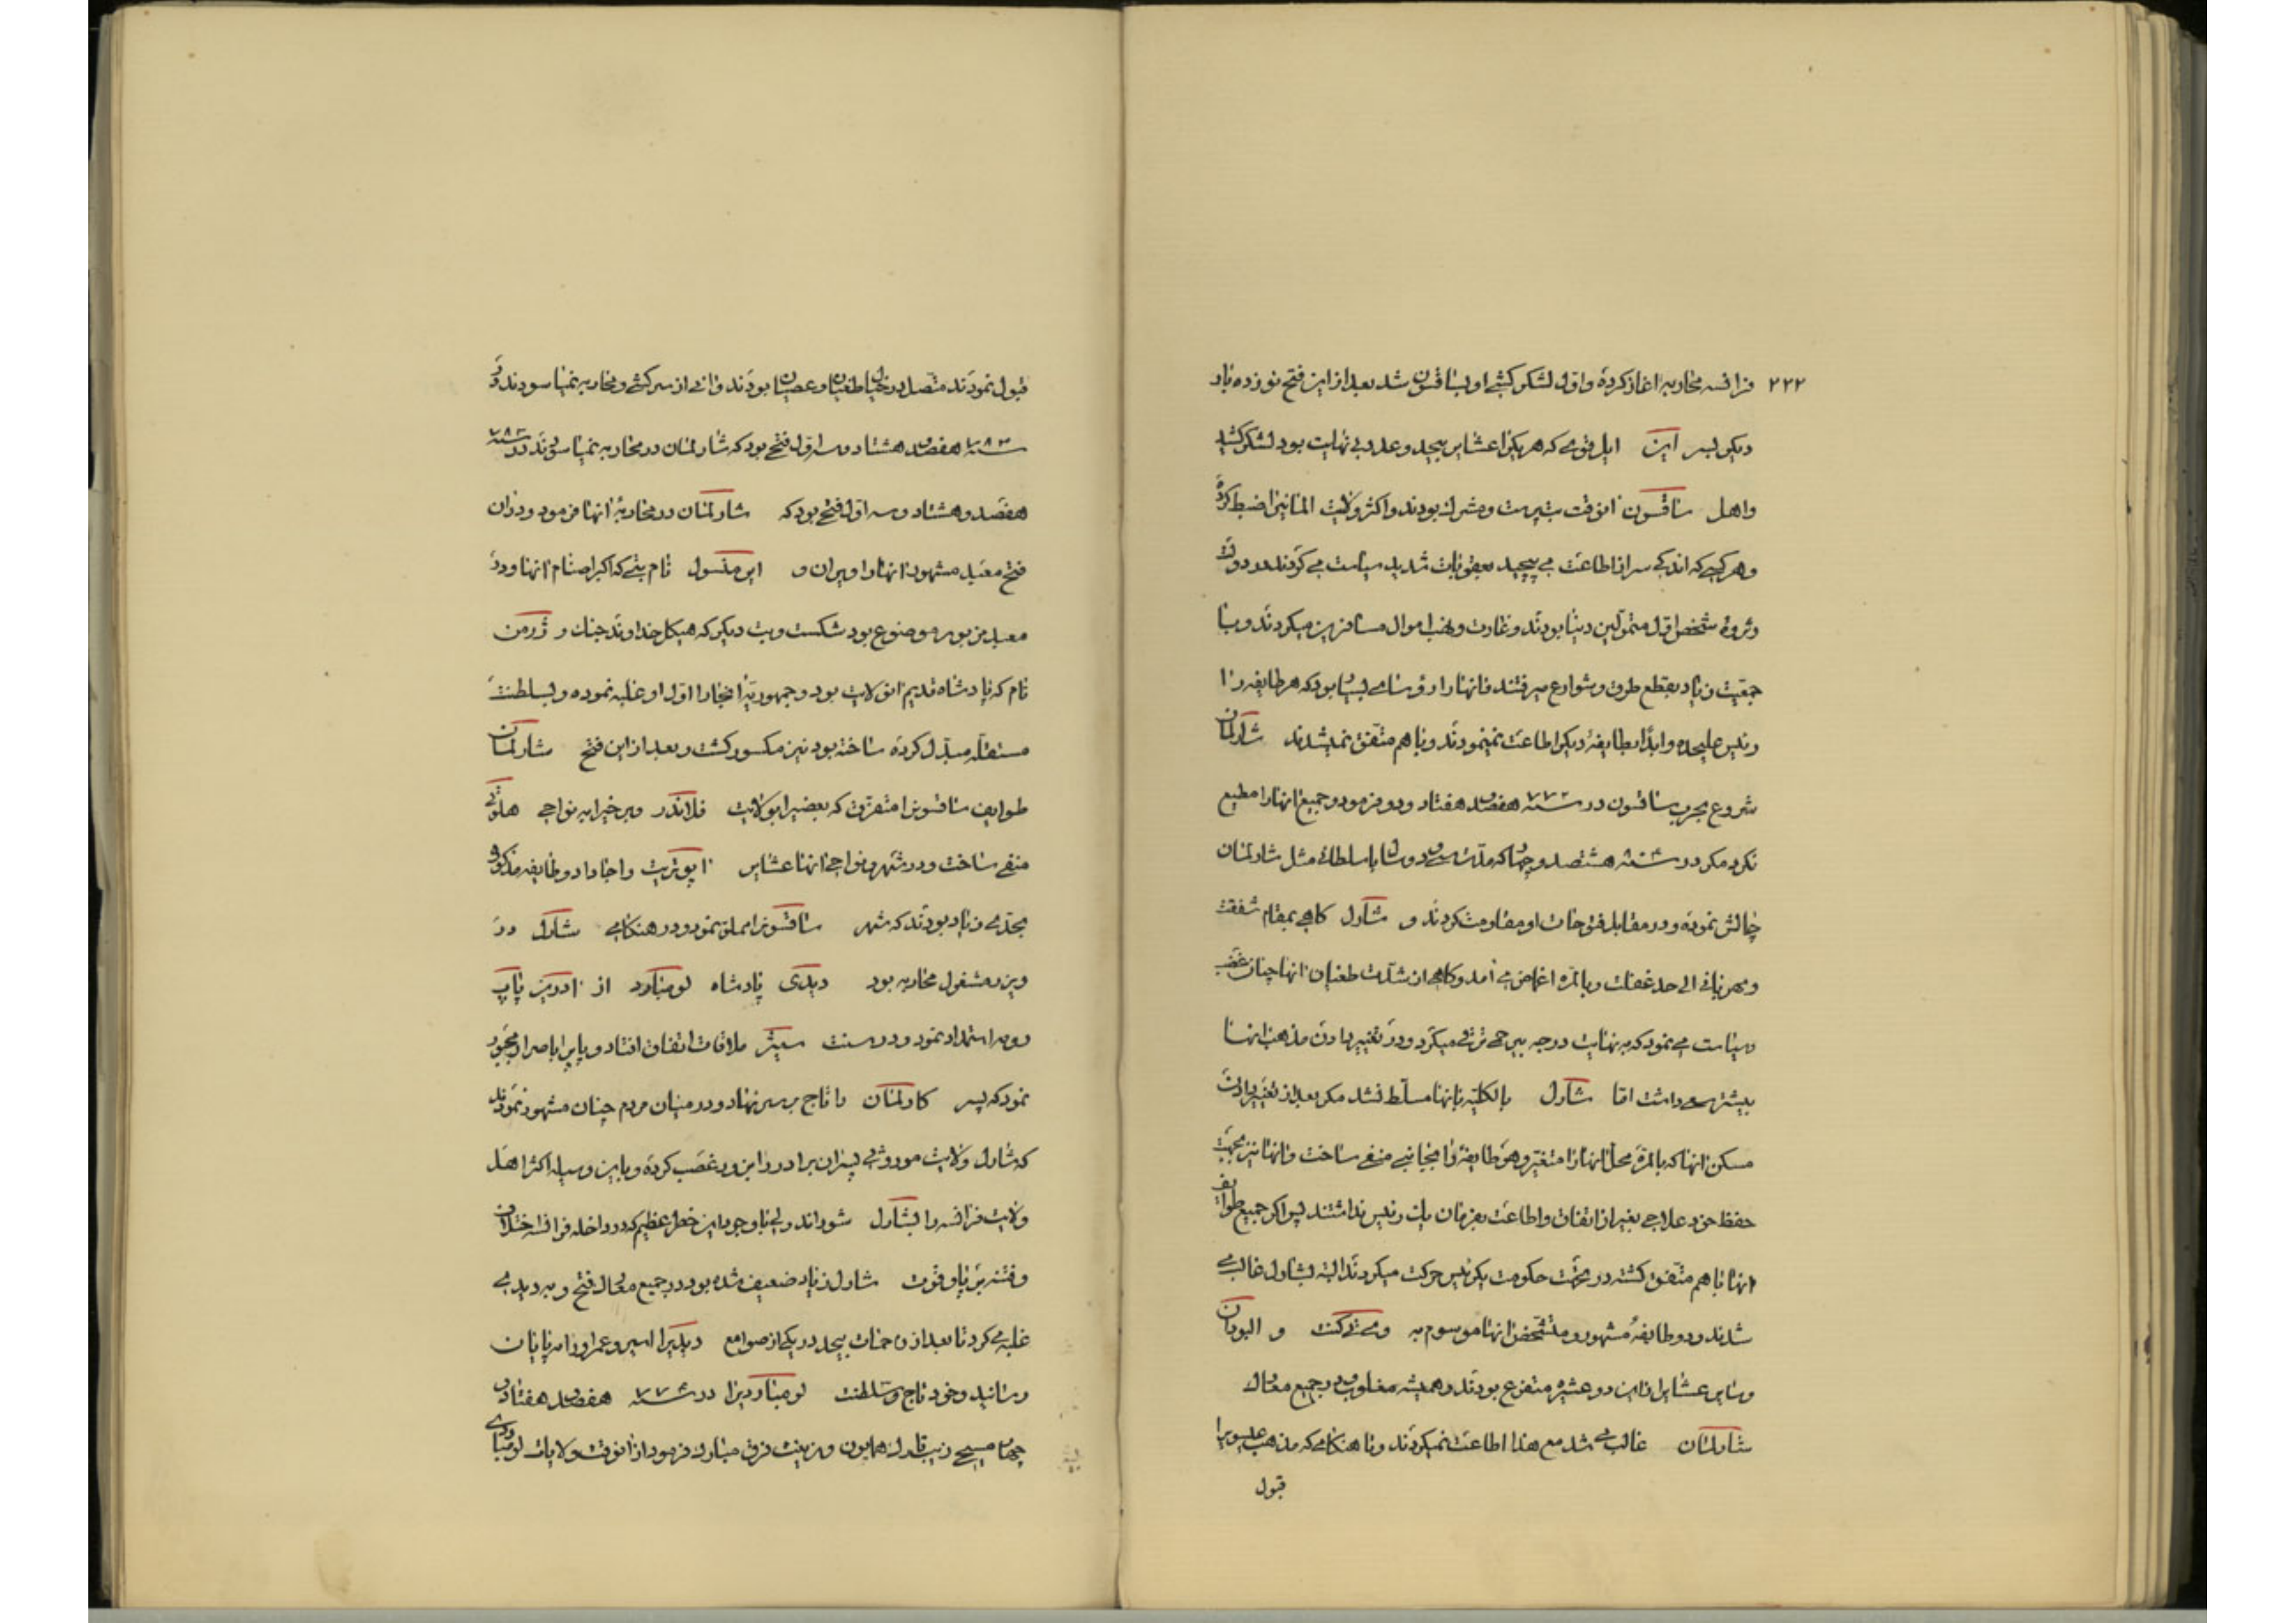 ۲۲۲ فرانسه محاربه اغاز کرده و اول لشکر کشی او بساقسون شد بعد از این فتح نوزده بار
دیکر بسر این ایل قومی که هر یکرا عشایر بیحد و عدد بی نهایت بود لشکر کشید
و اهل ساقسون انوقت بت پرست و مشرک بودند و اکثر ولایت المانیرا ضبط کرده
و هر کسی که اندکی سر از اطاعت می پیچید بعقوبات شدید سیاست می کردند و در دولت
و ثروة شخص اول متمولین دنیا بودند و غارت و نهب اموال مسافرین میکردند و با
جمعیت زیاد بقطع طرق و شوارع میرفتند و انها را رؤسای بسیار بود که هر طایفه را
رئیس علیحده و ابدا بطایفهٔ دیکر اطاعت نمینمودند و با هم متفق نمیشدند شارلمان
شروع بحرب ساقسون در سنه ۷۷۲ هفصد هفتاد و دو فرمود و جمیع انها را مطیع
نکرد مکر در سنه هشتصد و چهار که مدت سی و دو سال با سلطانی مثل شارلمان
چالش نموده و در مقابل فتوحات او مقاومت کردند و شارل کاهی بمقام شفقت
و مهربانی الی حد غفلت و بالمره اغماض می آمد و کاهی از شدت طغیان انها چنان غضب
و سیاست می نمود که به نهایت درجه بیرحمی ترقی میکرد و در تغییر دادن مذهب انها
بیشتر سعی داشت اما شارل بالکلیه بانها مسلط نشد مکر بعد از تغییر دادن
مسکن انها که بالمره محل انها را متغیر و هر طایفهٔ را بجانبی منفی ساخت و انها نیز بجهت
حفظ خود علاجی بغیر از اتفاق و اطاعت بفرمان یک رئیس نداشتند پس اکر جمیع طوایف
انها با هم متفق کشته در تحت حکومت یکرئیس حرکت میکردند البته بشارل غالب می
شدند و دو طایفهٔ مشهور و متشخص انها موسوم به و البودان
و سایر عشایر از این دو عشیره متفرع بودند و همیشه مغلوب و در جمیع معارک
شارلمان غالب می شد مع هذا اطاعت نمیکردند و تا هنکامی که مذهب عیسویرا
قبول
قبول نمودند متصل در خیال طغیان و عصیان بودند و انی از سرکشی و محاربه نمیاسودند و در
سنه ۷۸۳ هفصد هشتاد و سه اول فتحی بود که شارلمان در محاربه نمیاسودند در سنه ۷۸۳
هفصد و هشتاد و سه اول فتحی بود که شارلمان در محاربهٔ انها فرمود و در ان
فتح معبد مشهور انها را ویران و نام بتی که اکبر اصنام انها و در
معبد مزبور موضوع بود شکست و بت دیکر که هیکل خداوند جنک و
نام که پادشاه قدیم انولایت بود و جمهوریهٔ انجا را اول او غلبه نموده و بسلطنت
مستقله مبدل کرده ساخته بود نیز مکسور کشت و بعد از این فتح شارلمان
طوایف ساقسونرا متفرق که بعضیرا بولایت فلاندر و برخیرا به نواحی
منفی ساخت و در شهر و نواحی انها عشایر را جا داد و طایفه مذکوره
بحدی زیاد بودند که شهر ساقسونرا مملو نمود و در هنکامی شارل در
وین در مشغول محاربه بود دیدی پادشاه لومبارد از پاپ
روم استمداد نمود و در سنت ملاقات اتفاق افتاد و پاپرا باصرار مجبور
نمود که پسر کارلمان را تاج بر سر نهاد و در میان مردم چنان مشهور نمودند
که شارل ولایت موروثی پسران برادر را بزور غصب کرده و باین وسیله اکثر اهل
ولایت فرانسه را بشارل شوراند ولی با وجود این خطر عظیم که در داخله فرانسه اختلاف
و فتنه برپا و قوت شارل زیاد ضعیف شده بود در جمیع محال فتح و بر دیدی
غلبه می کرد تا بعد از زحمات بیحد در یکی از صوامع دیدیرا اسیر و عمر او را به پایان
رسانید و خود تاج و سلطنت لومباردیرا در سنه ۷۷۴ هفصد هفتاد و
چهار مسیحی زیب تارک همایون و زینت فرق مبارک فرمود از انوقت ولایات لومباردی